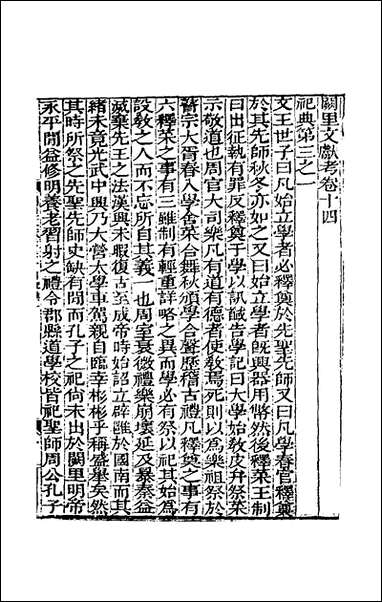 闕里文獻考卷十四
祀典第三之一
文王世子曰凡始立學者必釋奠於先聖先師又曰凡學春官釋奠
於其先師秋冬亦如之又曰始立學者旣興器用幣然後釋菜王制
曰出征執有罪反釋奠于學以訊馘告學記曰大學始敎皮弁祭菜
示敬道也周官大司樂凡有道有德者使敎焉死則以爲樂祖祭於
瞽宗大胥春入學舍菜合舞秋頒學合聲歷稽古禮凡釋奠之事有
六釋菜之事有三雖制有輕重詳略之異而學必有祭以祀其始爲
設敎之人而不忘所自其義一也周室衰微禮樂崩壞延及暴秦益
滅棄先王之法漢興未暇復古至成帝時始詔立辟雍於國南而其
緒未竟光武中興乃大營太學車駕親自臨幸彬彬乎稱盛舉矣然
其時所祭之先聖先師史缺有間而孔子之祀尙未出於闕里明帝
永平間益修明養老習射之禮令郡縣道學校皆祀聖師周公孔子